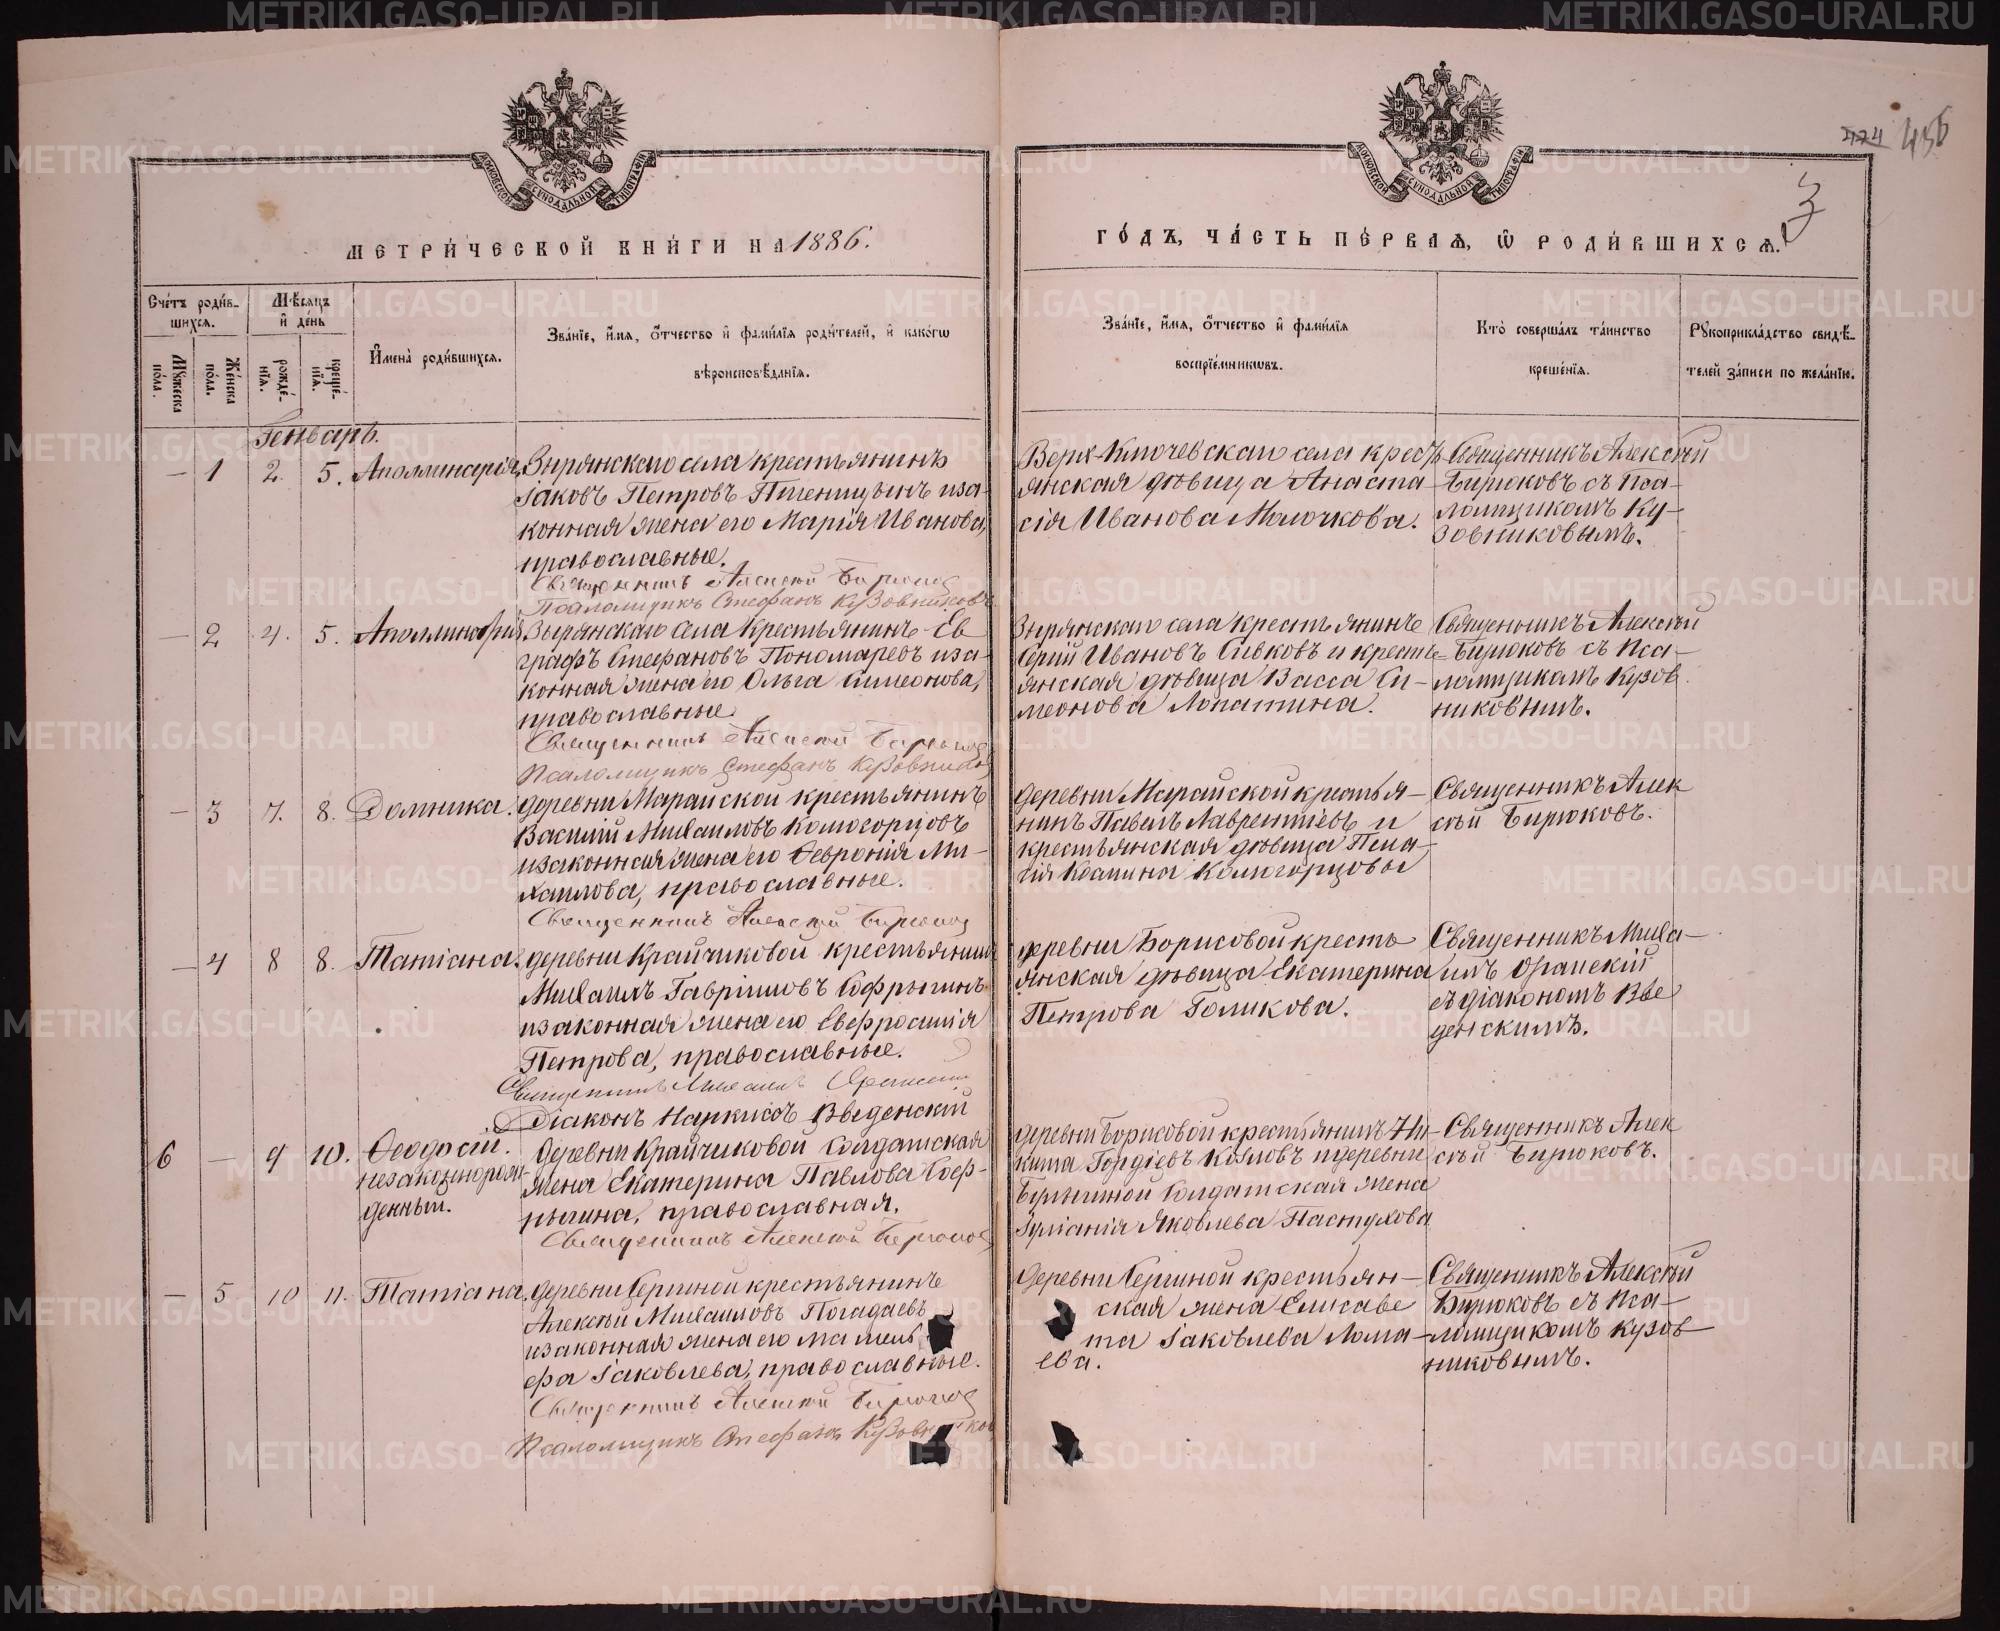 МЕТРИ́ЧЕСКОЙ КНИ́ГИ НА 1886.
ГО́ДЪ, ЧА́СТЬ ПЕ́РВАѦ, Ѿ РОДИ́ВШИХСѦ.
456
3
Сче́тъ роди́вшихся.
Мѣ́сяцъ и де́нь
Мꙋ́жеска по́ла.
Же́нска по́ла.
рожде́нїя.
креще́нїя.
И҆мена̀ роди́вшихся.
Зва́нїе, и҆́мя, ѻ҆́тчество и҆ фами́лїя роди́телей, и҆ како́гѡ
вѣроисповѣ́данїя.
Зва́нїе, и҆́мя, ѻ҆́тчество и҆ фами́лїя
воспрїе́мникѡвъ.
Кто̀ соверша́лъ та́инство
креще́нїя.
Рꙋкоприкла́дство свидѣ́-
телей за́писи по жела́нїю.
Генварь.
— 1 2. 5. Аполлинарія,
Зырянскаго села крестьянинъ
Іаковъ Петровъ Пшеницынъ иза-
конная жена его Марія Иванова,
православные.
Священникъ Алексѣй Бирюков
Псаломщикъ Стефанъ Кузовниковъ
Верх-Ключевскаго села кресть-
янская дѣвица Анаста-
сія Иванова Молочкова.
Священникъ Алексѣй
Бирюковъ съ Пса-
ломщикомъ Ку-
зовниковымъ.
— 2 4. 5. Аполлинарія
Зырянскаго села крестьянинъ Ев
графъ Стефановъ Пономаревъ иза-
конная жена его Ольга Симеонова,
православные
Священникъ Алексѣй Бирюков
Псаломщикъ Стефанъ Кузовников
Зырянскаго села крестьянинъ
Сергій Ивановъ Сивковъ и кресть-
янская дѣвица Васса Си-
меонова Лопатина.
Священникъ Алексѣй
Бирюковъ съ Пса-
ломщикомъ Кузов
никовымъ.
— 3 7. 8. Домника.
деревни Марайской крестьянинъ
Василій Михаиловъ Коmогорцовъ
изаконная жена его Феvронія Ми-
хаилова, православные.
Священникъ Алексѣй Бирюков
деревни Марайской крестья-
нинъ Павелъ Лаврентіевъ и
крестьянская дѣвица Пела-
гія Колмогорцовы
Священникъ Алек
сѣй Бирюковъ.
— 4 8 8. Татіана.
деревни Крайчиковой крестьянинъ
Михаилъ Гавріиловъ Софрыгинъ
изаконная жена его Евфросинія
Петрова, православные.
Священникъ Михаилъ
Діаконъ Наркиссъ Введенскій
деревни Борисовой кресть
янская дѣвица Екатерина
Петрова Голикова.
Священникъ Миха-
илъ
съ діакономъ Вве
денскимъ.
6 — 9 10. Феодосій.
незаконнорож-
денный.
деревни Крайчиковой Солдатская
жена Екатерина Павлова Соф-
рыгина, православная.
Священникъ Алексѣй Бирюков
деревни Борисовой крестьянинъ Ни-
кита Гордіевъ Козловъ и деревни
Солдатская жена
Іуліанія Яковлева Пастухова
Священникъ Алек
сѣй Бирюковъ.
— 5 10 11. Татіана.
деревни крестьянинъ
Алексѣй Михаиловъ Погадаевъ
изаконная жена его
Іаковлева, православные.
Священникъ Алексѣй Бирюков
Псаломщикъ Стефанъ Кузовников
деревни крестьян-
ская жена Елисаве
та Іаковлева Лома-
ева.
Священникъ Алексѣй
Бирюковъ съ Пса-
ломщикомъ Кузов
никовымъ.
METRIKI.GASO-URAL.RU